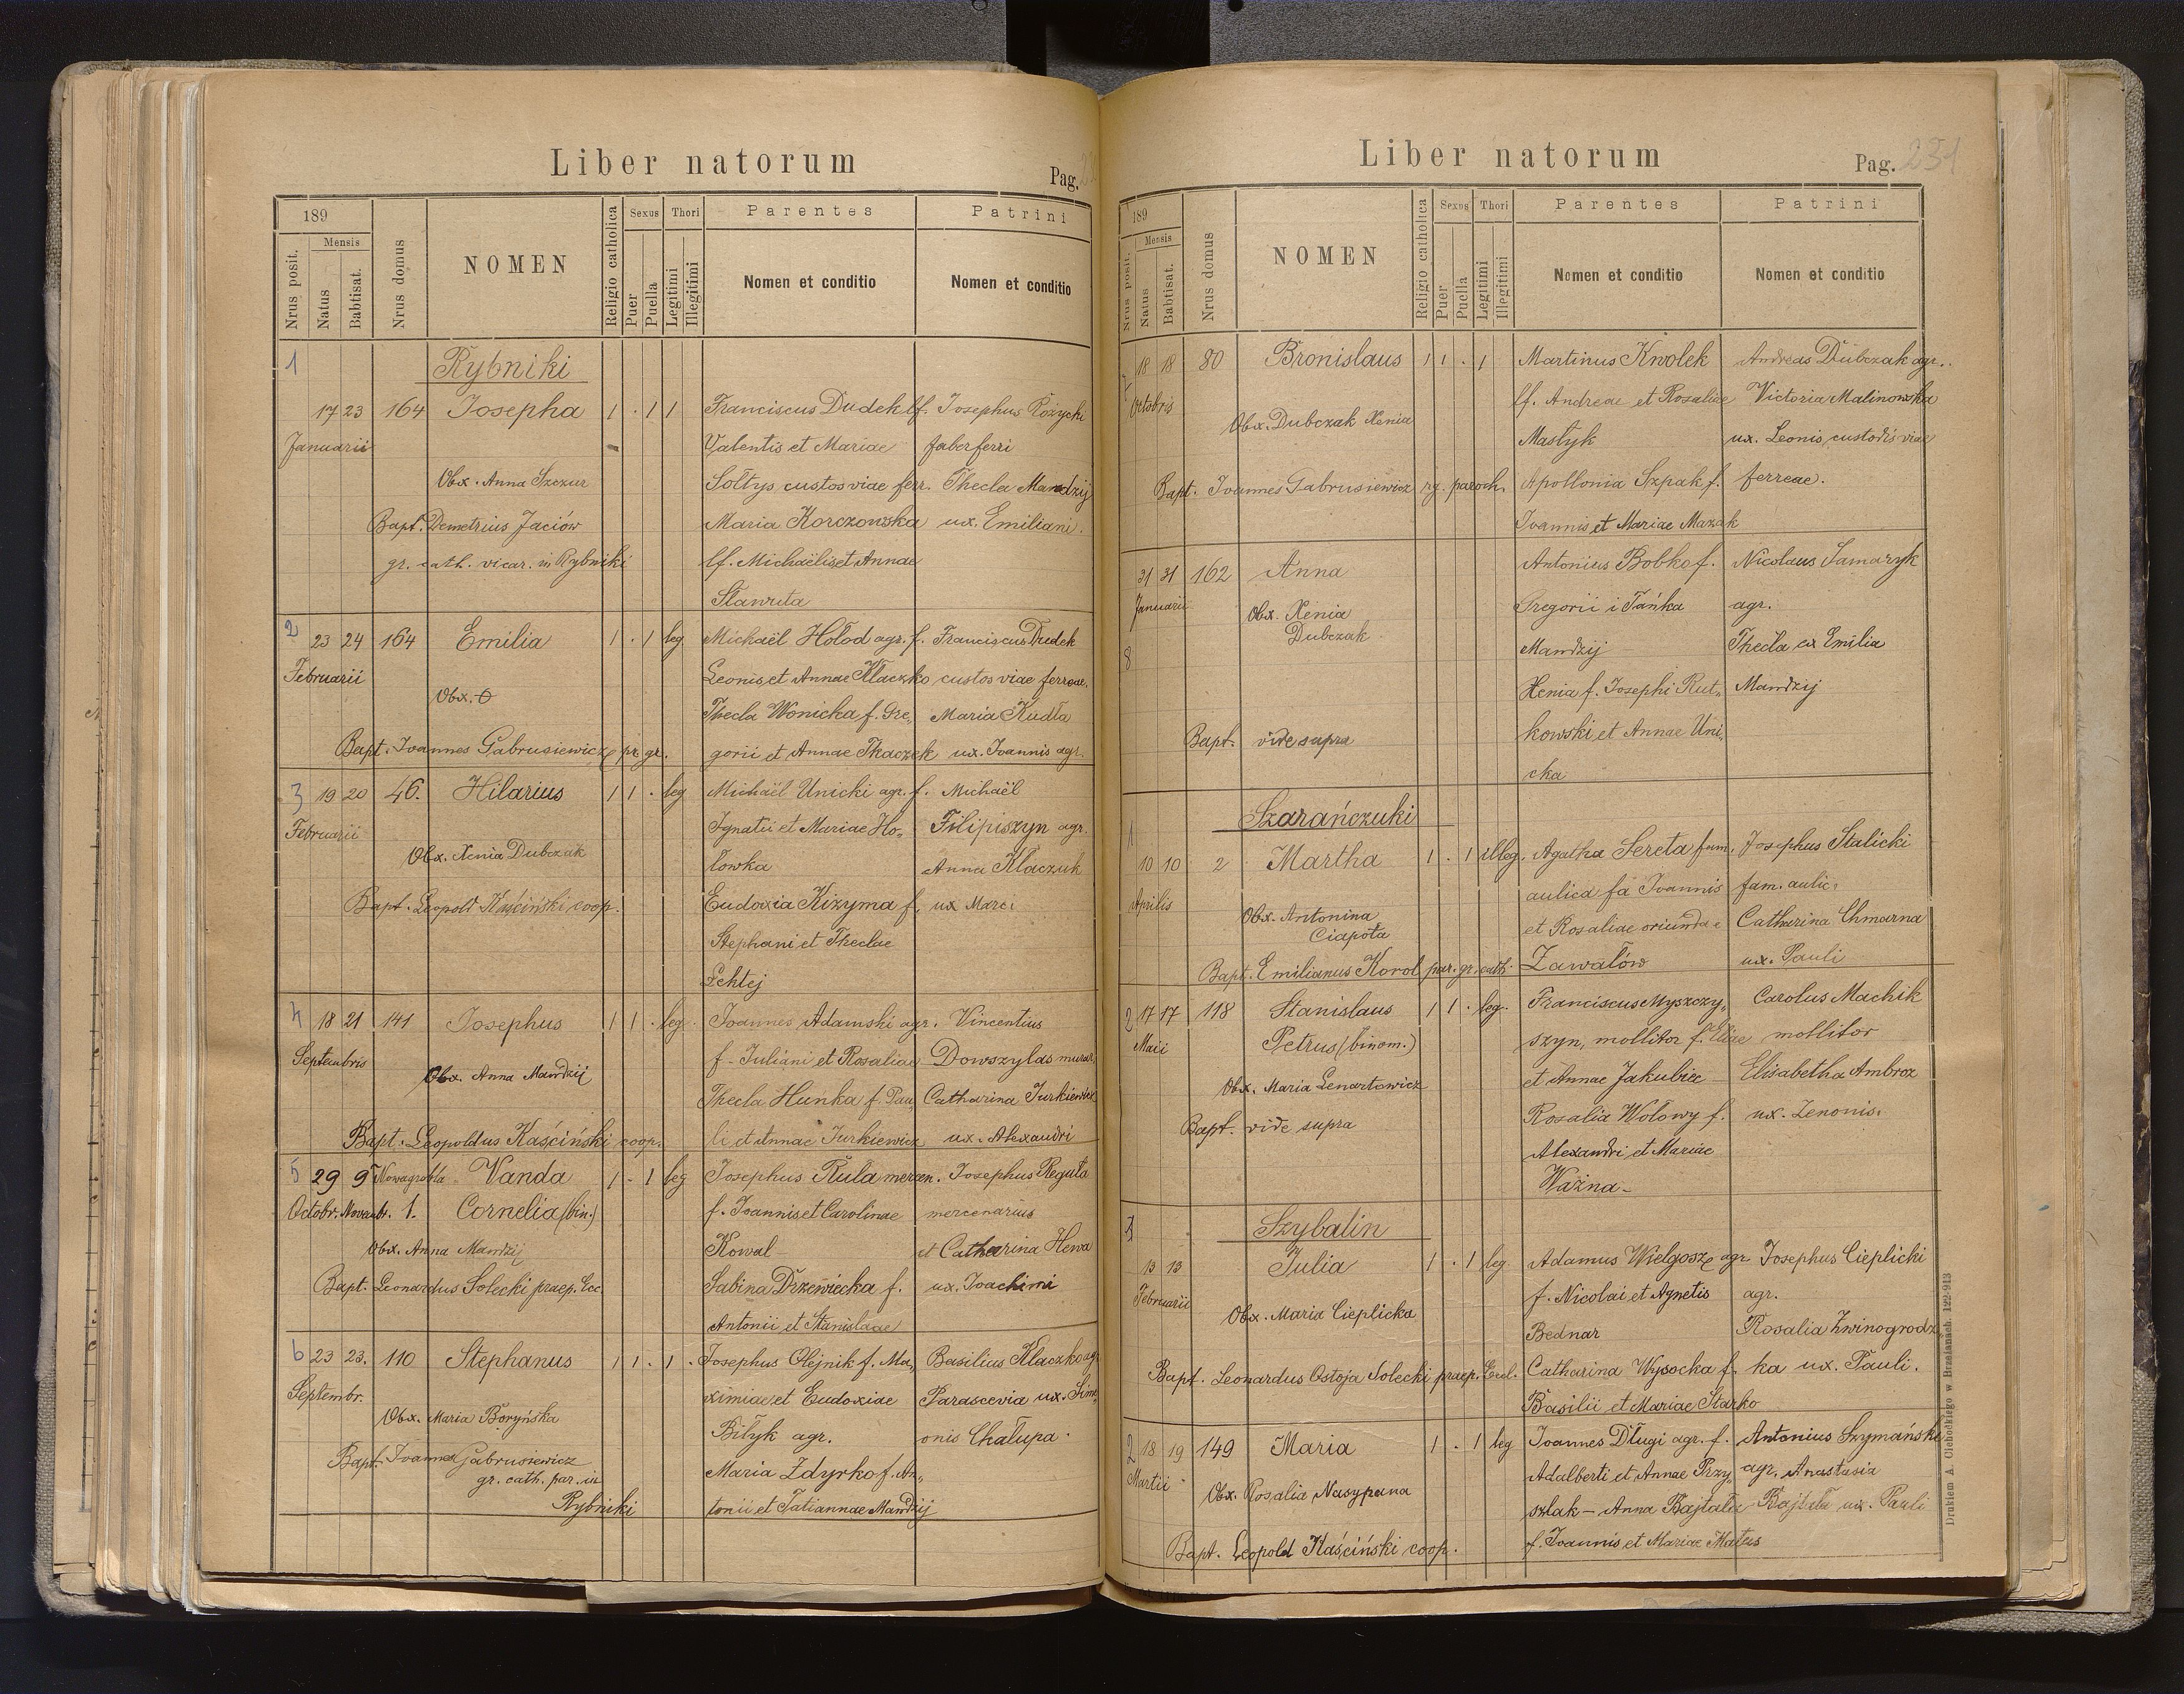 Liber natorum
Pag.
189
Nrus posit.
Mensis
Natus
Babtisat.
Nrus domus
NOMEN
Religio catholica
Sexus
Puer
Puella
Thori
Legitimi
Illegitimi
Parentes
Nomen et conditio
Patrini
Nomen et conditio
1 Rybniki
17 23 164 Josepha 1 . 1 1 Franciscus Dudek lf. Josephus Rożycki
Januarii Valentis et Mariae faber ferri
Obx. Anna Szczur Sołtys custos viae ferr. Thecla Mandzij
Bapt. Demetrius Jaciów Maria Korczowska ux. Emiliani.
gr. cath. vicar. in Rybniki lf. Michaëlis et Annae
Stawuta
2 23 24 164 Emilia 1 . 1 leg Michaël Hołod agr. f. Franciscus Dudek
Februarii Leonis et Annae Klaczko custos viae ferreae.
Obx. O Thecla Wonicka f. Gre- Maria Kudła
Bapt. Ioannes Gabrusiewicz pr. gr. gorii et Annae Tkaczek ux. Ioannis agr.
3 19 20 46. Hilarius 1 1 . leg Michaël Unicki agr. f. Michaël
Februarii Ignatii et Mariae Ho- Filipiszyn agr.
Obx. Xenia Dubczak łowka Anna Klaczuk
Bapt. Leopold Kaściński coop. Eudoxia Kizyma f. ux Marci
Stephani et Theclae
Lehtej
4 18 21 141 Josephus 1 1 . leg. Joannes Adamski agr. Vincentius
Septembris f. Juliani et Rosaliae Dowszylas murar.
Obx. Anna Mandzij Thecla Hunka f. Pau- Catharina Jurkiewicz
Bapt. Leopoldus Kaściński coop. li et Annae Jurkiewicz ux. Alexandri
5 29 9 Nowagrobla Vanda 1 - 1 leg Josephus Kula mercen. Josephus Reguła
Octobr. Novembr. 1. Cornelia (bin.) f. Ioannis et Carolinae mercenarius
Obx. Anna Mandzij Kowal et Catharina Hewa
Bapt. Leonardus Solecki praep. Ecc. Sabina Drzewiecka f. ux. Joachimi
Antonii et Stanislaae
6 23 23. 110 Stephanus 1 1 . 1 . Josephus Olejnik f. Ma- Basilius Klaczko agr
Septembr. ximiae et Eudoxiae Parascevia ux. Sim-
Obx. Maria Boryńska Biłyk agr. onis Chałupa.
Bapt. Ioannes Gabrusiewicz Maria Zdyrko f. An-
gr. cath. par. in
Rybniki tonii et Tatiannae Mandzij
Liber natorum
Pag. 231
189
Nrus posit.
Mensis
Natus
Babtisat.
Nrus domus
NOMEN
Religio catholica
Sexus
Puer
Puella
Thori
Legitimi
Illegitimi
Parentes
Nomen et conditio
Patrini
Nomen et conditio
7 18 18 80 Bronislaus 1 1 . 1 Martinus Kwolek Andreas Dubczak agr.
Octobris lf. Andreae et Rosaliae Victoria Malinowska
Obx. Dubczak Xenia Mastyk ux. Leonis, custodis viae
Bapt. Ioannes Gabrusiewicz rg. paroch. Apollonia Szpak f. ferreae.
Ioannis et Mariae Mazak
31 31 162 Anna Antonius Bobko f. Nicolaus Samaryk
Januarii Obx. Xenia Gregorii i Tańka agr.
8 Dubczak Mandzij Thecla ex Emilia
Xenia f. Josephi Rut- Mandzij
Bapt. vide supra kowski et Annae Uni-
cka
1 Szarańczuki
10 10 2 Martha 1 . 1 illeg. Agatha Sereta fam. Josephus Stalicki
Aprilis aulica fa Ioannis fam. aulic.
Obx. Antonina et Rosaliae oriundae Catharina Chmarna
Ciapota
Bapt. Emilianus Korol par. gr. cath. Zawałów ux. Pauli
2 17 17 118 Stanislaus 1 1 . leg. Franciscus Myszczy- Carolus Machik
Maii Petrus (binom.) szyn, mollitor f. Eliae mollitor
Obx. Maria Lenartowicz et Annae Jakubiec Elisabetha Ambroz
Bapt. vide supra Rosalia Wołowy f. ux. Zenonis.
Alexandri et Mariae
Ważna -
1 Szybalin
13 13 Julia 1 . 1 leg. Adamus Wielgosz agr. Josephus Cieplicki
Februarii f. Nicolai et Agnetis agr.
Obx. Maria Cieplicka Bednar Rosalia Zwinogrodz-
Bapt. Leonardus Ostoja Solecki praep. Eccl. Catharina Wysocka f. ka ux. Pauli.
Basilii et Mariae Starko
2 18 19 149 Maria 1 . 1 leg Ioannes Długi agr. f. Antonius Szymański
Martii Adalberti et Annae Przy- agr. Anastasia
Obx. Rosalia Nasypana szlak - Anna Bajtała Bajtała ux. Pauli
Bapt. Leopold Kaściński coop. f. Ioannis et Mariae Matus
Drukiem A. Cichockiego w Brzeżanach. 122-913